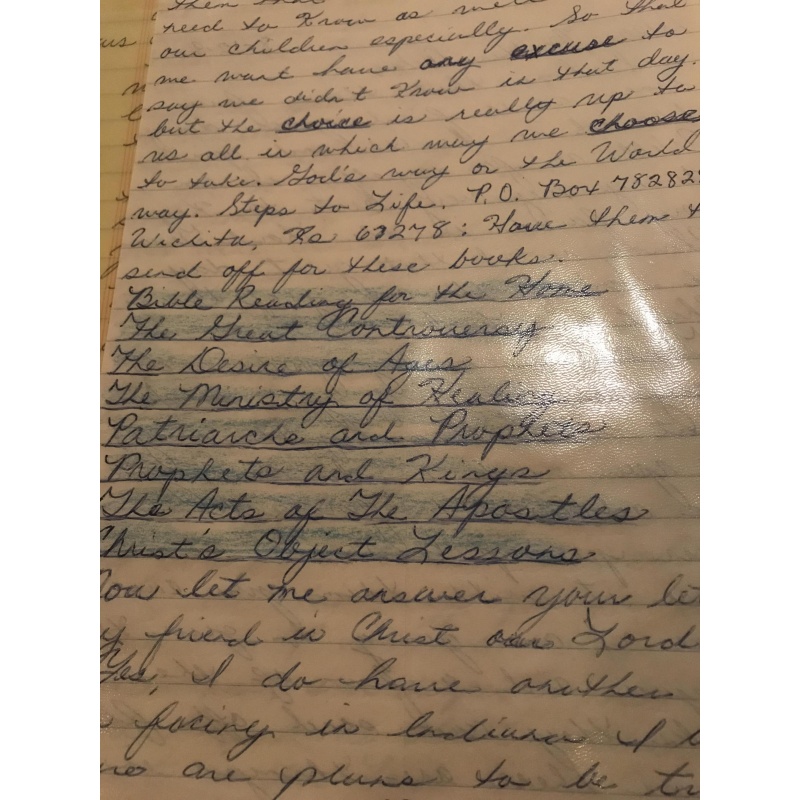 them that
need to know as well
our children especially. So that
me want have any excuse to
say we didn't know in that day.
but the choice is really up to
us all in which way we choose
to take. God's way or the World
way. Steps to Life. P.O. Box 78282
Wichita, Ks 67278: Have them
send off for these books.
Bible Reading for the Home
The Great Controversy
The Desire of Ages
The Ministry of Healing
Patriarchs and Prophets
Prophets and Kings
The Acts of The Apostles
Christ's Object Lessons
Now let me answer your
friend in Christ our Lord
Yes, I do have another
facing in Indiana I
are plans to be